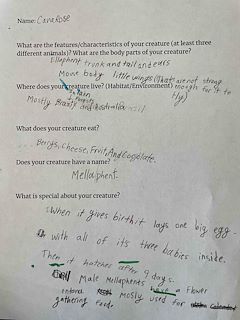 Name: CaraRose
What are the features/characteristics of your creature (at least three
different animals)? What are the body parts of your creature?
Ellaphent trunk and tail and ears
Mouse body little wings (that are not strong
enough for it to
fly)
Where does your creature live? (Habitat/Environment)
in Rain
forests
Mostly Brazil and Australia
What does your creature eat?
Berys, Cheese, Fruit, And
Does your creature have a name?
Mellaphent.
What is special about your creature?
When it gives birth it lays one big egg
with all of its three babies inside.
Then it hatches after 9 days.
Male Mellaphents have a Flower
mostly used for
gathering food.